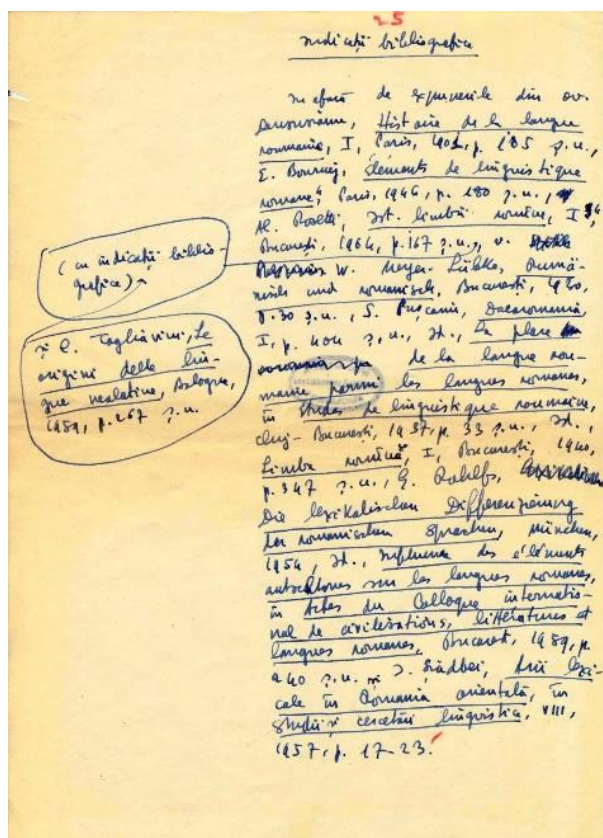 25
Indicații bibliografice
În afară de expunerile din Ov.
Densusianu, Histoire de la langue
roumaine, I, Paris, 1901, p. 185 ș.u.,
E. Bourciez, Éléments de linguistique
romane, Paris, 1946, p. 180 ș.u.,
Al. Rosetti, Ist. limbii române, I
București, 1964, p. 167 ș.u., v.
(cu indicații biblio-
grafice)
W. Meyer-Lübke, Rumä-
nisch und romanisch, București, 1930,
p. 30 ș.u., S. Pușcariu, Dacoromania,
I, p. 404 ș.u., Id., La place
de la langue rou-
maine parmi les langues romanes,
în Études de linguistique roumaine,
Cluj-București, 1937, p. 33 ș.u., Id.,
Limba română, I, București, 1940,
p. 347 ș.u., G. Rohlfs,
Die lexikalischen Differenzierung
der romanischen Sprachen, München,
1954, Id., Influence des éléments
autochtones sur les langues romanes,
în Actes du Colloque internatio-
nal de civilisations, littératures et
langues romanes, Bucarest, 1959, p.
240 ș.u. și I. Șiadbei, Arii lexi-
cale în Romania orientală, în
Studii și cercetări lingvistice, VIII,
1957, p. 17-23.
și C. Tagliavini, Le
origini delle lin-
gue neolatine, Bologna,
p. 267 ș.u.